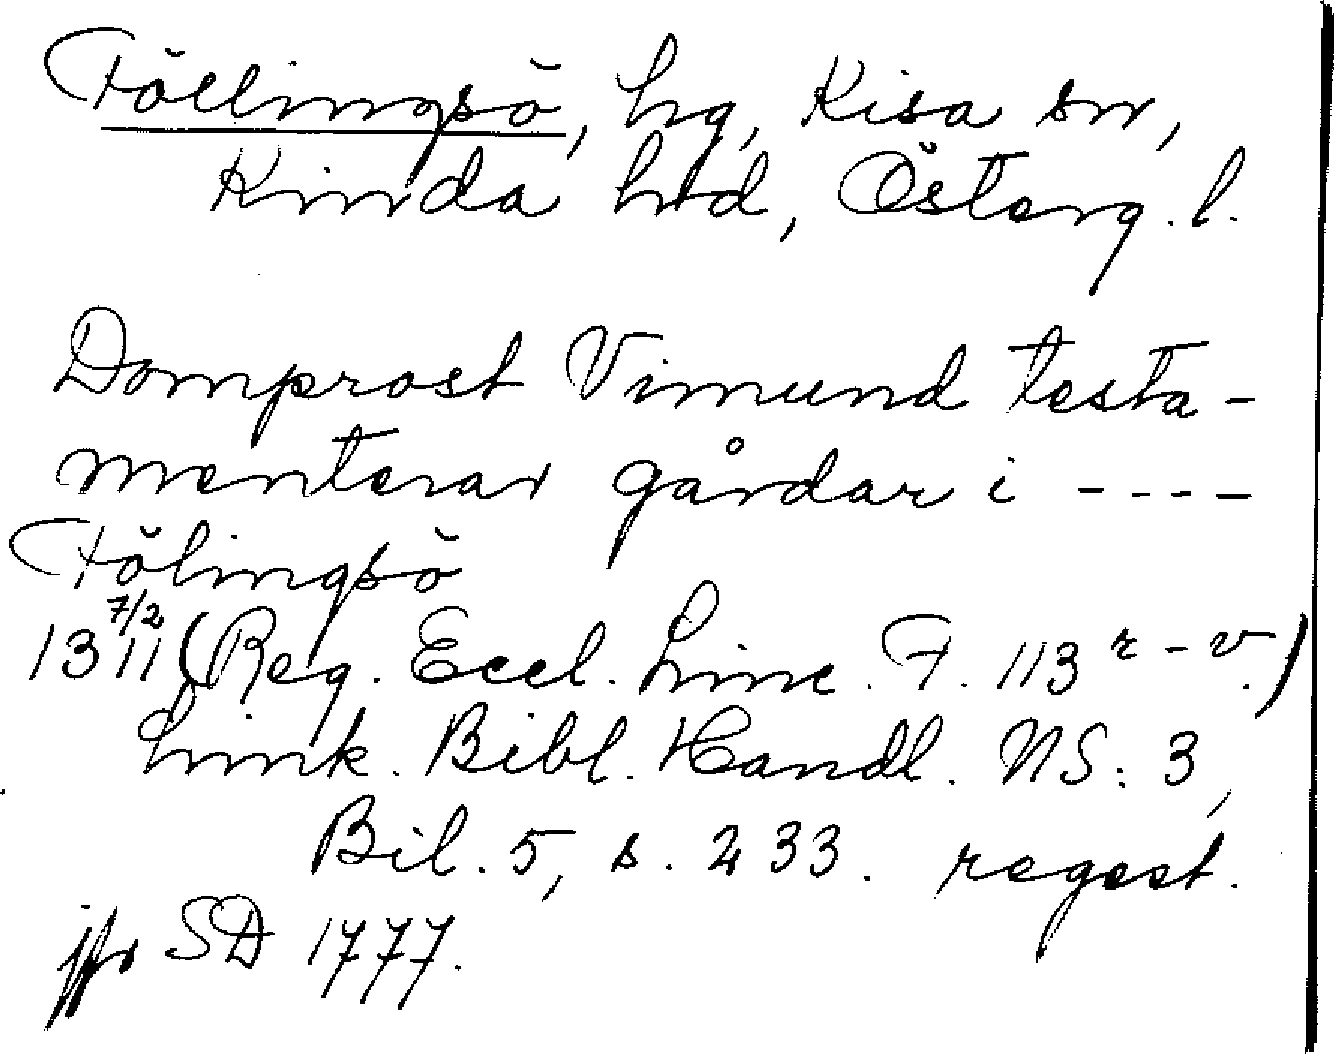 Föllingsö, hg, Kisa sn,
Kinda hd, Österg. l.
Domprost Vimund testa-
menterar gårdar i ----
Fölingsö
13 7/2 11 (Reg. Eccl. Linc. F. 113 r-v.)
Link. Bibl. Handl. NS: 3,
Bil. 5, s. 233. regest.
jfr SD 1777.